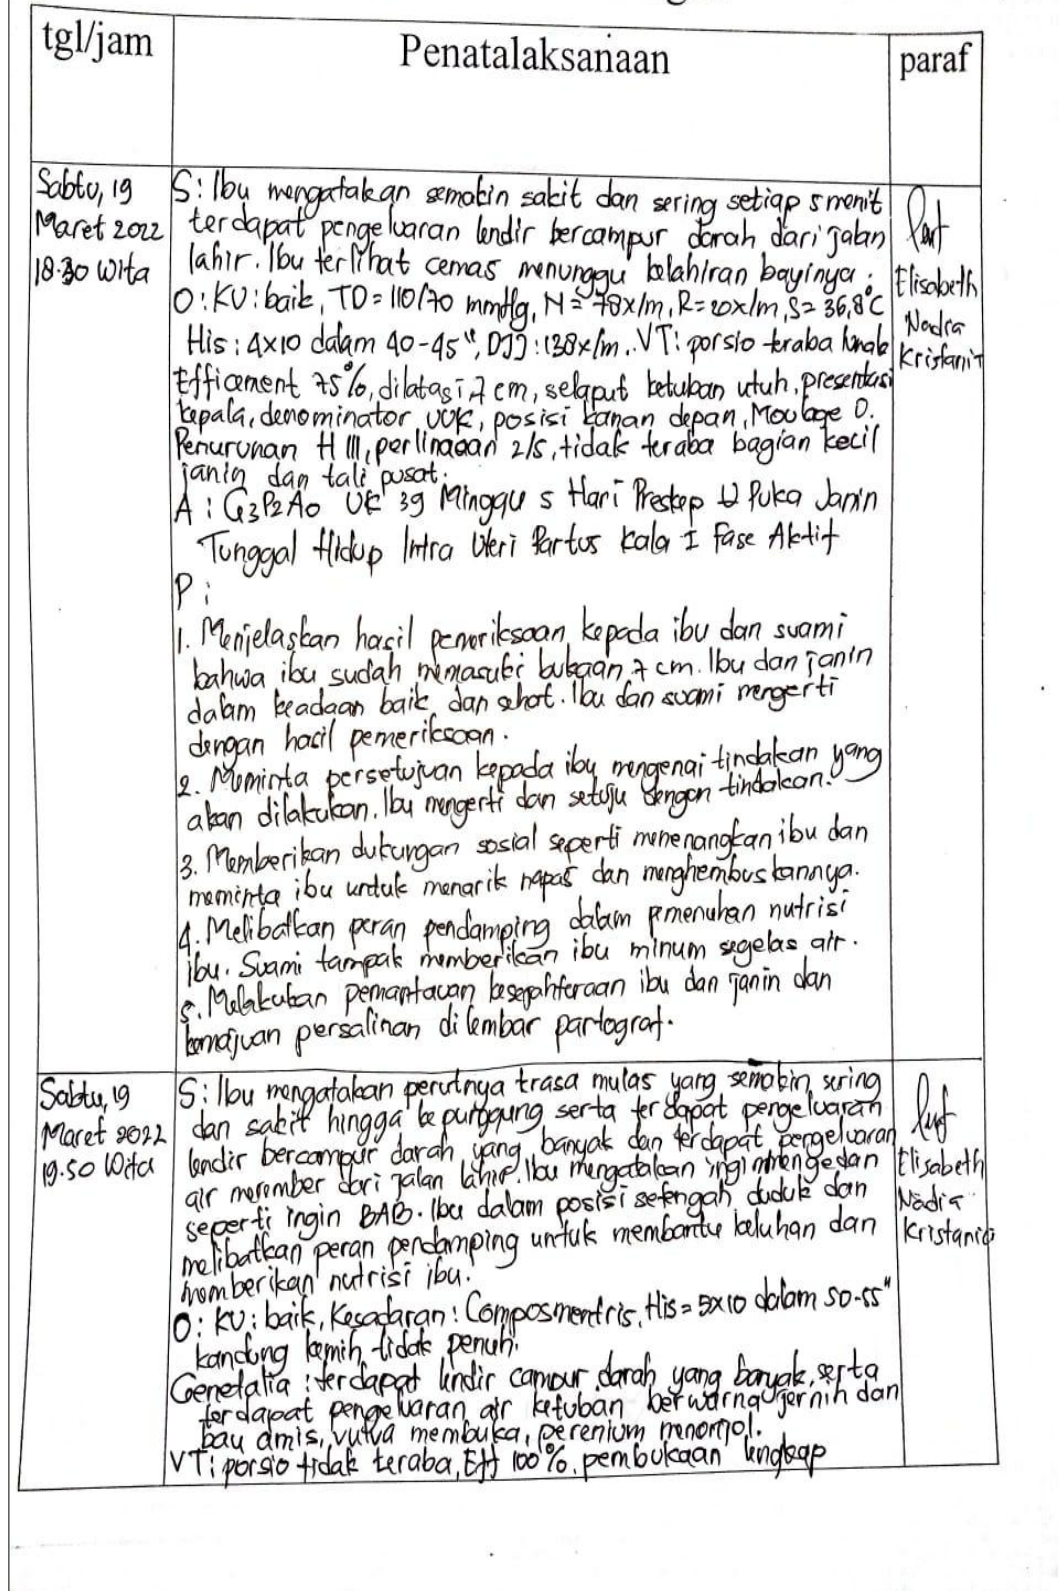 tgl/jam
Penatalaksanaan
paraf
Sabtu, 19
Maret 2022
18.30 Wita
S: Ibu mengatakan semakin sakit dan sering setiap 5 menit
terdapat pengeluaran lendir bercampur darah dari jalan
lahir. Ibu terlihat cemas menunggu kelahiran bayinya.
O: KU: baik, TD= 110/70 mmHg, N= 78x/m, R= 20x/m, S= 36,8°C
His: 4x10 dalam 40-45", DJJ: 138x/m. VT: porsio teraba lunak
Efficement 75%, dilatasi 7 cm, selaput ketuban utuh, presentasi
kepala, denominator UUK, posisi kanan depan, Moulage 0.
Penurunan H III, perlimaan 2/5, tidak teraba bagian kecil
janin dan tali pusat.
A: G3P2A0 UK 39 Minggu 5 Hari Preskep U Puka Janin
Tunggal Hidup Intra Uteri Partus Kala I Fase Aktif
P:
1. Menjelaskan hasil pemeriksaan kepada ibu dan suami
bahwa ibu sudah memasuki bukaan 7 cm. Ibu dan janin
dalam keadaan baik dan sehat. Ibu dan suami mengerti
dengan hasil pemeriksaan.
2. Meminta persetujuan kepada ibu mengenai tindakan yang
akan dilakukan. Ibu mengerti dan setuju dengan tindakan.
3. Memberikan dukungan sosial seperti menenangkan ibu dan
meminta ibu untuk menarik napas dan menghembuskannya.
4. Melibatkan peran pendamping dalam pmenuhan nutrisi
ibu. Suami tampak memberikan ibu minum segelas air.
5. Melakukan pemantauan kesejahteraan ibu dan janin dan
kemajuan persalinan di lembar partograf.
Elisabeth
Nadia
Kristanti
Sabtu, 19
Maret 2022
19.50 Wita
S: Ibu mengatakan perutnya trasa mulas yang semakin sering
dan sakit hingga ke punggung serta terdapat pengeluaran
lendir bercampur darah yang banyak dan terdapat pengeluaran
air merember dari jalan lahir. Ibu mengatakan ingin mengedan
seperti ingin BAB. Ibu dalam posisi setengah duduk dan
melibatkan peran pendamping untuk membantu keluhan dan
memberikan nutrisi ibu.
O: KU: baik, Kesadaran: Composmentris, His= 5x10 dalam 50-55"
kandung kemih tidak penuh.
Genetalia: terdapat lendir campur darah yang banyak, serta
terdapat pengeluaran air ketuban berwarna jernih dan
bau amis, vulva membuka, perenium menonjol.
VT: porsio tidak teraba, Eff 100%, pembukaan lengkap
Elisabeth
Nadia
Kristanti